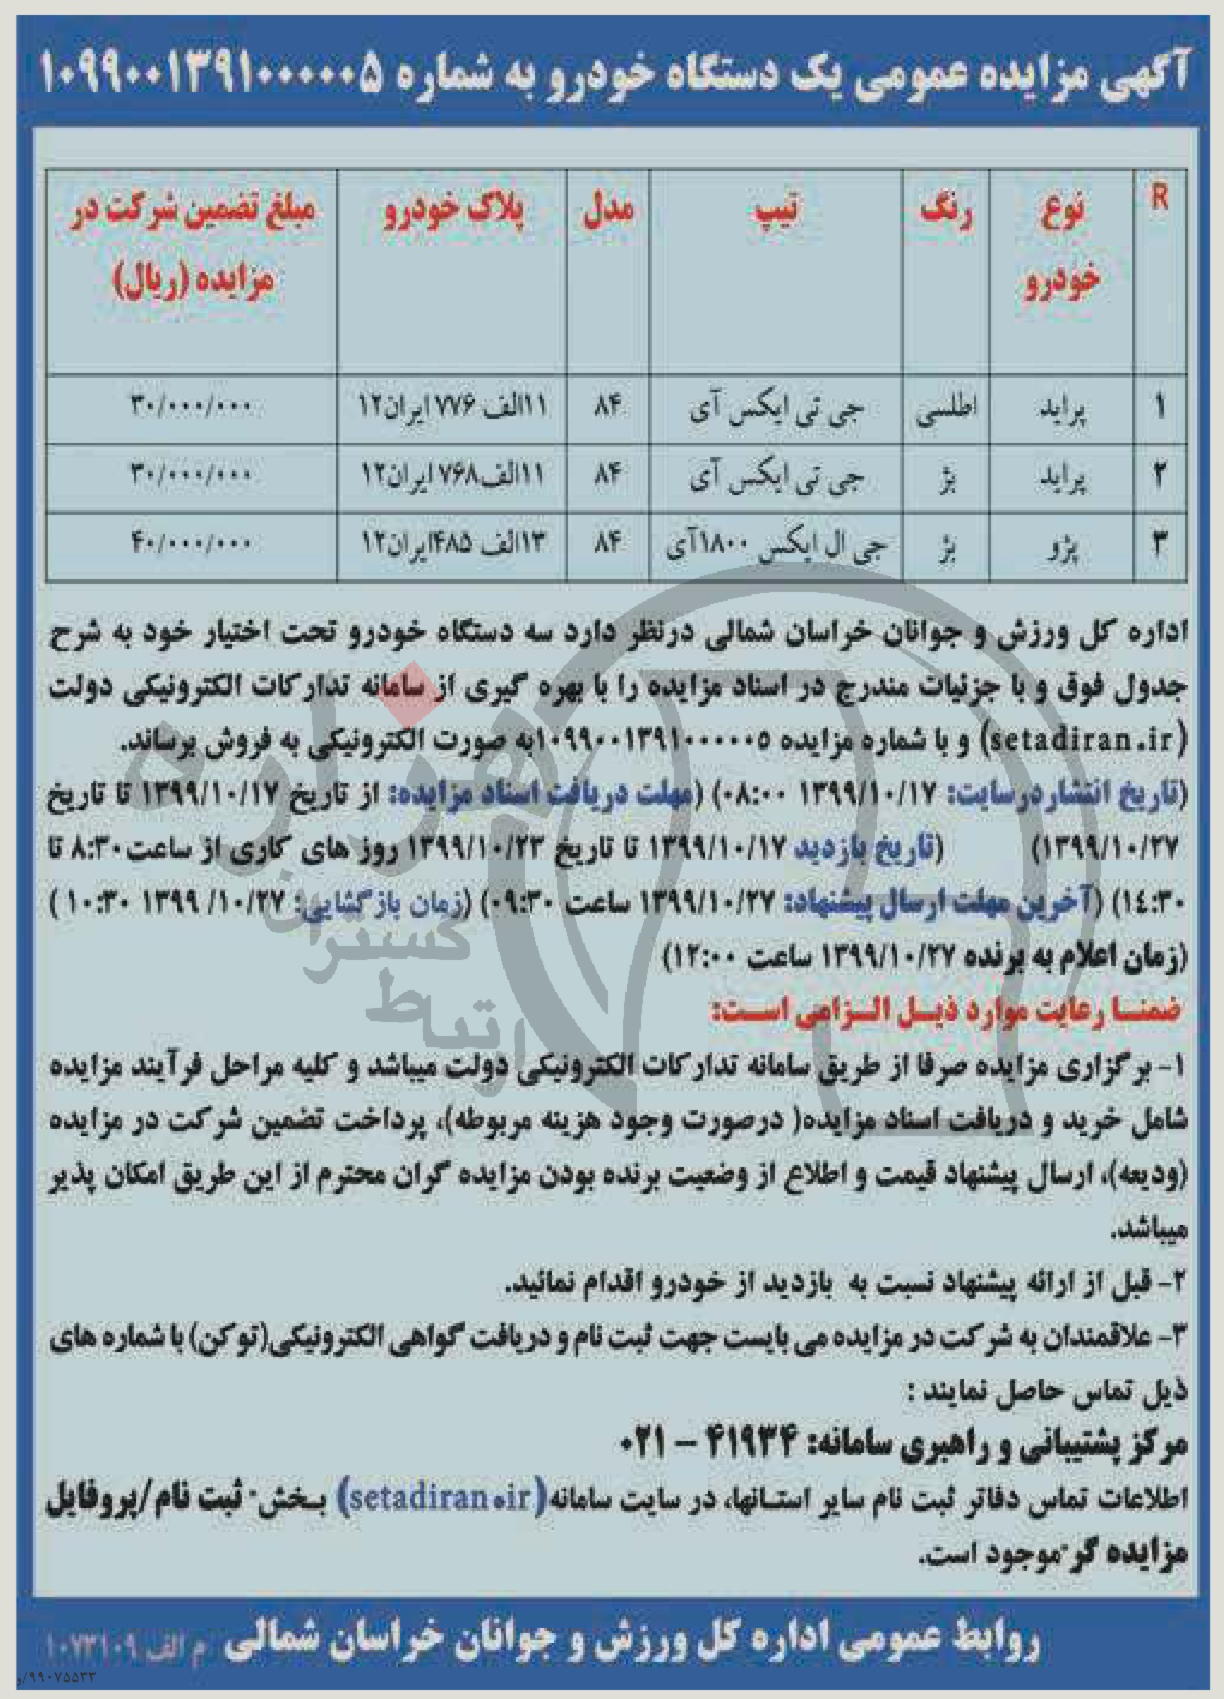 آگهی مزایده عمومی یک دستگاه خودرو به شماره ۱۰۹۹۰۰۱۳۹۱۰۰۰۰۰۵
R نوع خودرو رنگ تیپ مدل پلاک خودرو مبلغ تضمین شرکت در مزایده (ریال)
۱ پراید اطلسی جی تی ایکس آی ۸۴ ۱۱الف ۷۷۶ ایران۱۲ ۳۰/۰۰۰/۰۰۰
۲ پراید بژ جی تی ایکس آی ۸۴ ۱۱الف۷۶۸ ایران۱۲ ۳۰/۰۰۰/۰۰۰
۳ پژو بژ جی ال ایکس ۱۸۰۰آی ۸۴ ۱۳الف ۴۸۵ایران۱۲ ۴۰/۰۰۰/۰۰۰
اداره کل ورزش و جوانان خراسان شمالی درنظر دارد سه دستگاه خودرو تحت اختیار خود به شرح
جدول فوق و با جزئیات مندرج در اسناد مزایده را با بهره گیری از سامانه تدارکات الکترونیکی دولت
(setadiran.ir) و با شماره مزایده ۱۰۹۹۰۰۱۳۹۱۰۰۰۰۰۵به صورت الکترونیکی به فروش برساند.
(تاریخ انتشاردرسایت: ۱۳۹۹/۱۰/۱۷ ۰۸:۰۰) (مهلت دریافت اسناد مزایده: از تاریخ ۱۳۹۹/۱۰/۱۷ تا تاریخ
۱۳۹۹/۱۰/۲۷) (تاریخ بازدید ۱۳۹۹/۱۰/۱۷ تا تاریخ ۱۳۹۹/۱۰/۲۳ روز های کاری از ساعت۸:۳۰ تا
۱٤:۳۰) (آخرین مهلت ارسال پیشنهاد: ۱۳۹۹/۱۰/۲۷ ساعت ۰۹:۳۰) (زمان بازگشایی: ۱۰/۲۷/ ۱۳۹۹ ۱۰:۳۰ )
(زمان اعلام به برنده ۱۳۹۹/۱۰/۲۷ ساعت ۱۲:۰۰)
ضمنا رعایت موارد ذیل الزامی است:
۱- برگزاری مزایده صرفا از طریق سامانه تدارکات الکترونیکی دولت میباشد و کلیه مراحل فرآیند مزایده
شامل خرید و دریافت اسناد مزایده( درصورت وجود هزینه مربوطه)، پرداخت تضمین شرکت در مزایده
(ودیعه)، ارسال پیشنهاد قیمت و اطلاع از وضعیت برنده بودن مزایده گران محترم از این طریق امکان پذیر
میباشد.
۲- قبل از ارائه پیشنهاد نسبت به بازدید از خودرو اقدام نمائید.
۳- علاقمندان به شرکت در مزایده می بایست جهت ثبت نام و دریافت گواهی الکترونیکی(توکن) با شماره های
ذیل تماس حاصل نمایند :
مرکز پشتیبانی و راهبری سامانه: ۴۱۹۳۴ – ۰۲۱
اطلاعات تماس دفاتر ثبت نام سایر استانها، در سایت سامانه(setadiran.ir) بخش" ثبت نام/پروفایل
مزایده گر"موجود است.
روابط عمومی اداره کل ورزش و جوانان خراسان شمالی م الف ۱۰۷۳۱۰۹
۹۹۰۷۵۵۳۳/و
هزاره
گسترش
ارتباط